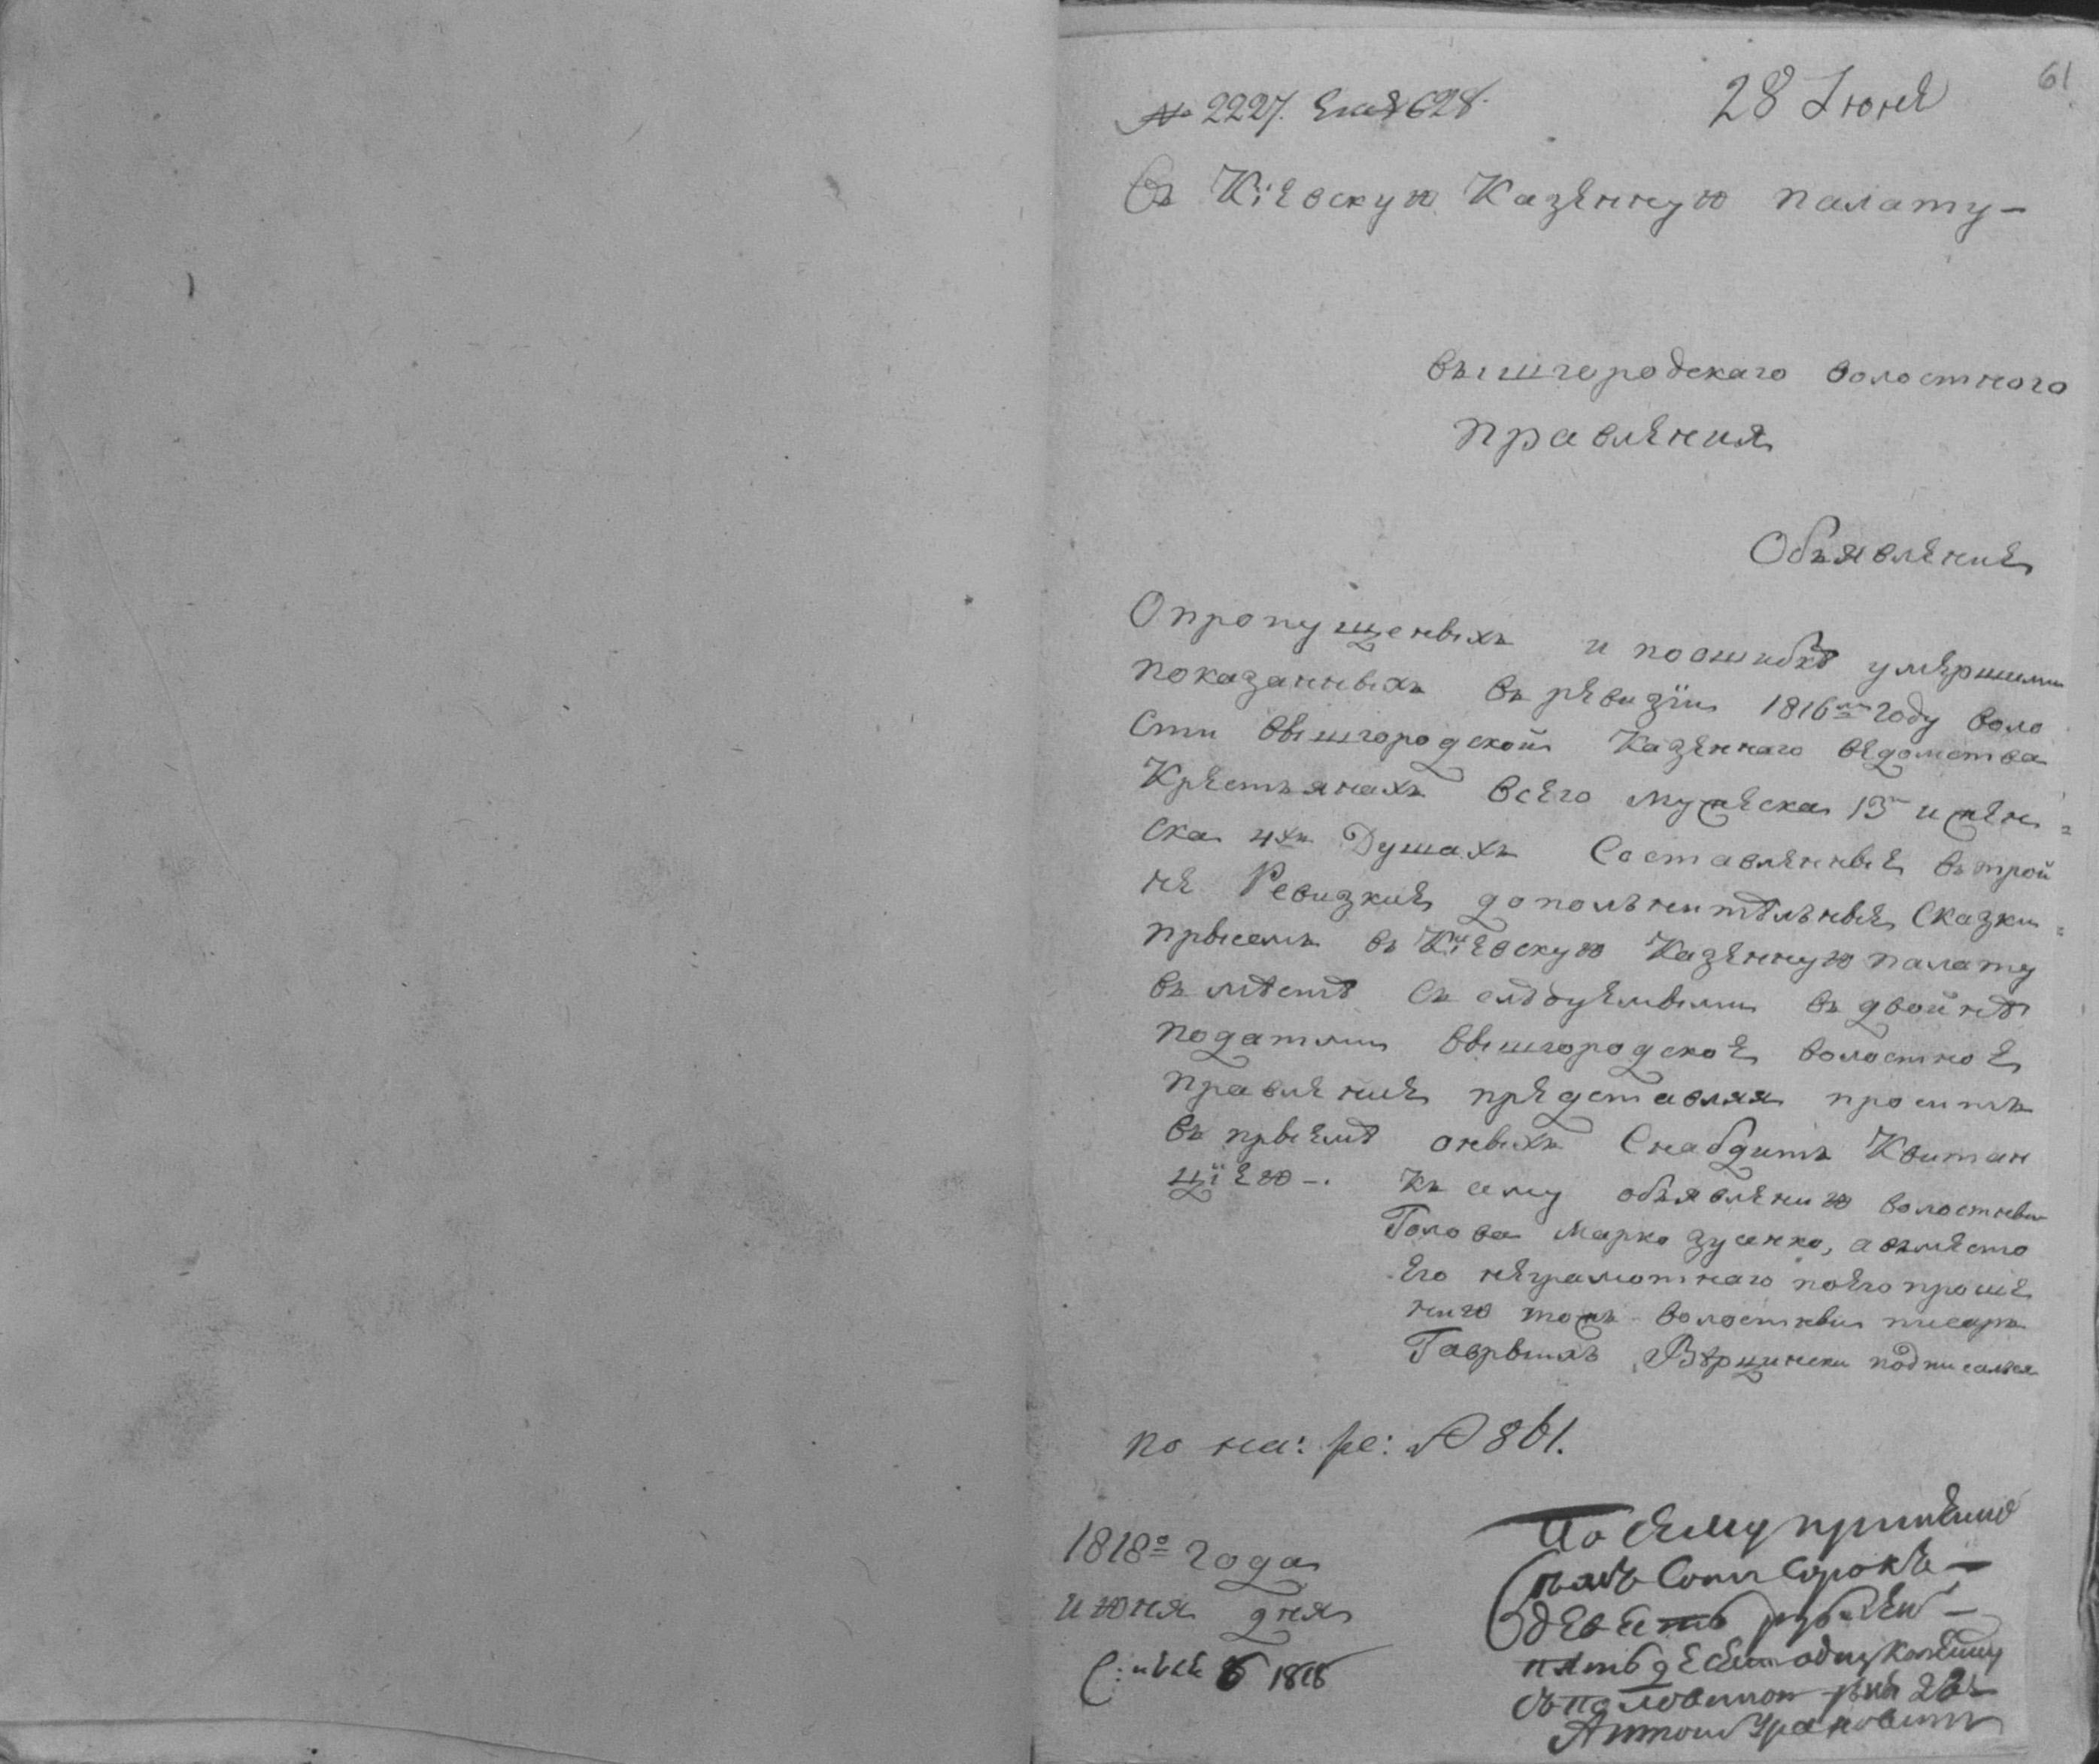 61
№ 2227. 628.
28 Июня
Въ Кіевскую Казенную палату –
вышгородскаго волостного
правления
Объявление
О пропущеныхъ и поошибкѣ умершими
показанныхъ въ ревизіи 1816м году воло
сти вышгородской Казеннаго ведомства
Крестьянахъ всего мужеска 13 и жен=
ска 4хъ Душахъ Составленные въ трой
не Ревизкие дополънитѣлъные Сказки=
въ Кіевскую Казенную палату
въ мѣстѣ съ слѣдуемыми въ двойнѣ
податми вышгородское волостное
правление представляя проситъ
въ прыемѣ оныхъ Снабдитъ Квитан
ціею –. Къ сему объявлению волостны
Голова Марко Зусенко, а вместо
его неграмотнаго поего проше
нию тожъ волостны писаръ
подписался
по на: ре: № 861.
1818о года
июня дня
1818
По сему
сотъ сорокъ –
девять рублей –
пятьдесят одну копейку
съ половиною